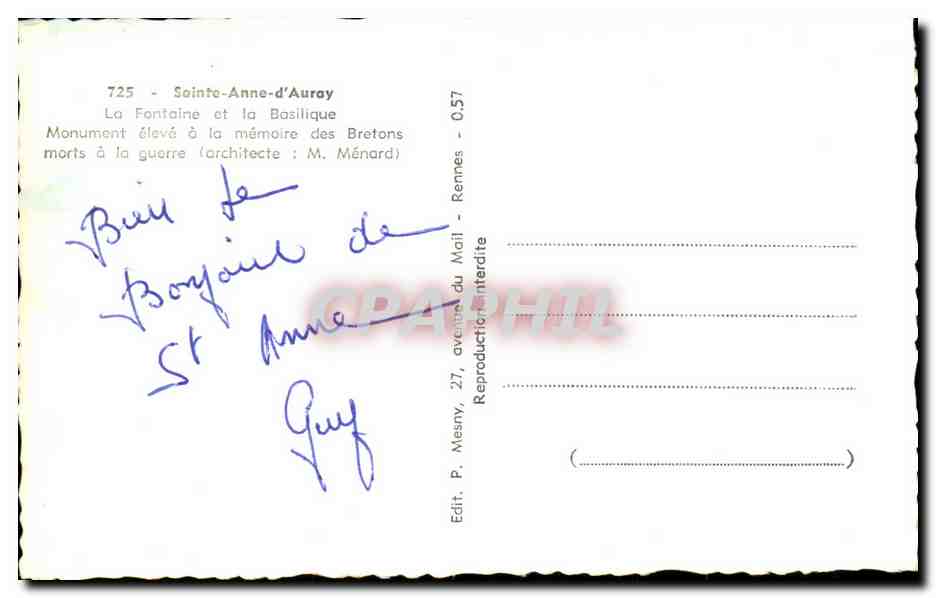 725 - Sainte-Anne-d'Auray
La Fontaine et la Basilique
Monument élevé à la mémoire des Bretons
morts à la guerre (architecte : M. Ménard)
Bien le
Bonjour de
St Anne
Guy
Edit. P. Mesny, 27, avenue du Mail - Rennes - 0.57
Reproduction interdite
CPAPHIL